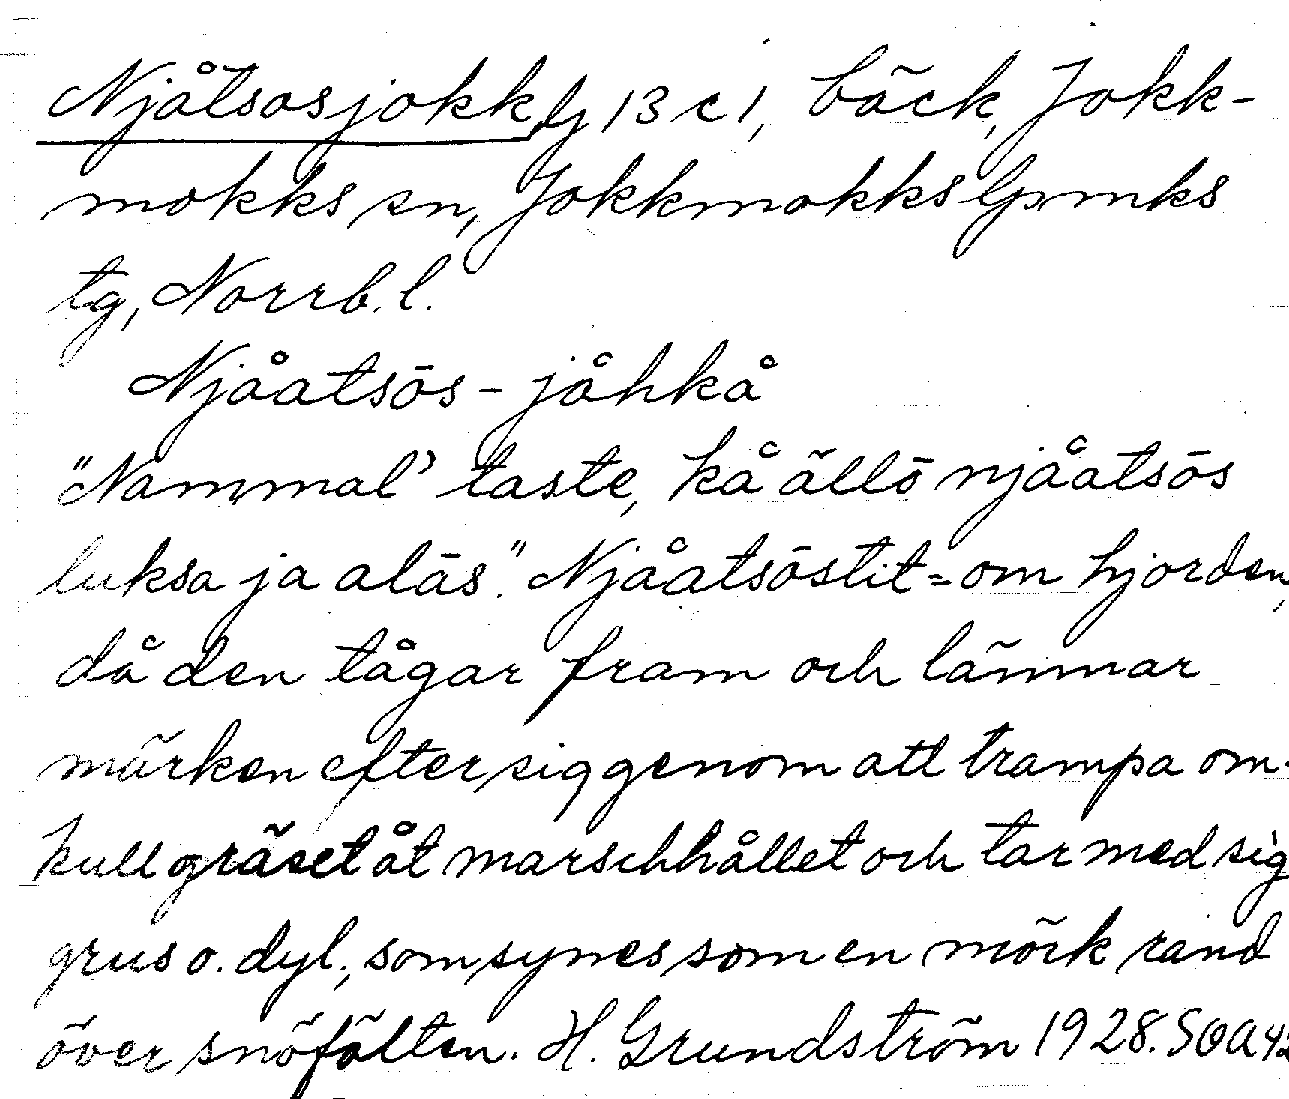 Njåtsosjokk, Ij 13 c 1, bäck, Jokk-
mokks sn, Jokkmokks lpmks
tg, Norrb. l.
Njåatsōs - jåhkå
"Nammal' taste, kå ällō njåatsōs
luksa ja alās". Njåatsōstit = om hjorden,
då den tågar fram och lämnar
märken efter sig genom att trampa om-
kull gräset åt marschhållet och tar med sig
grus o. dyl., som synes som en mörk rand
över snöfälten. H. Grundström 1928. SOA 42